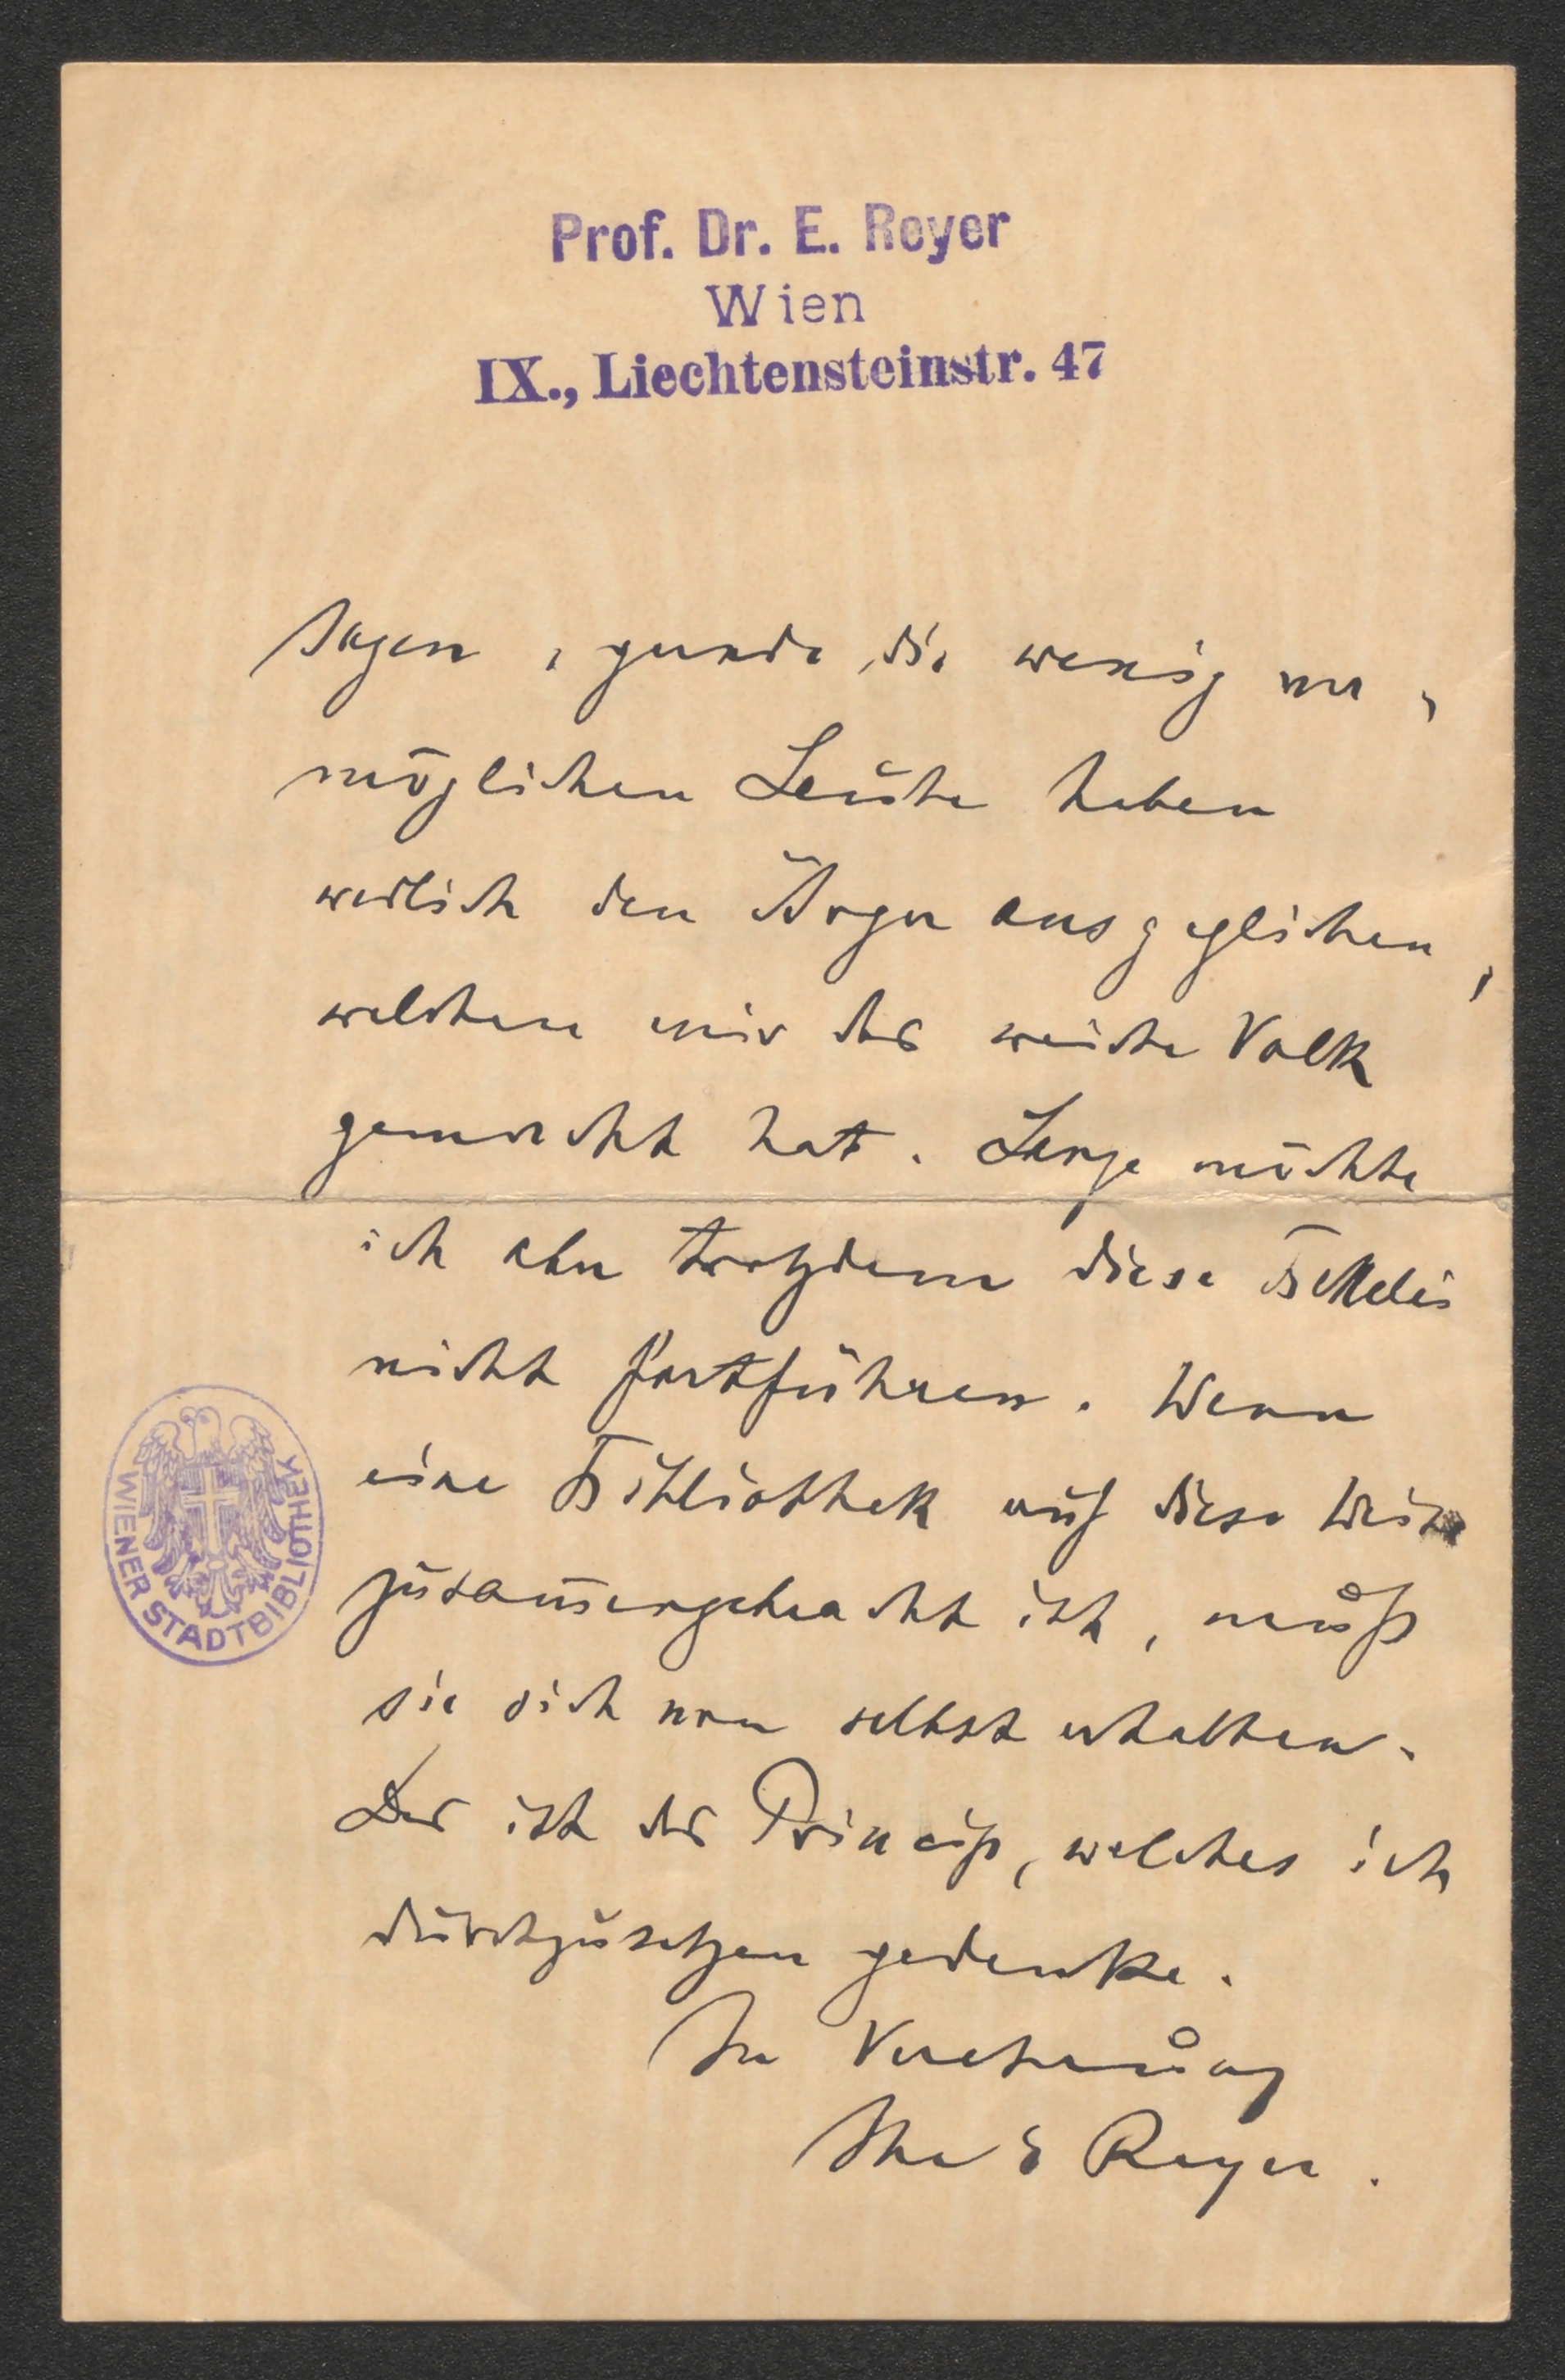 Prof. Dr. E. Reyer
Wien
IX., Liechtensteinstr. 47
sagen, gerade die wenig ver-
möglichen Leute haben
redlich den Ärger ausgeglichen,
welchen mir das reiche Volk
gemacht hat. Lange möchte
ich aber trotzdem diese Bettelei
nicht fortführen. Wenn
eine Bibliothek auf diese Weise
zusam̄engebracht ist, muß
sie sich selbst erhalten.
Das ist das Princip, welches ich
durchzusetzen gedenke.
In Verehrung
Ihr E Reyer.
WIENER STADTBIBLIOTHEK